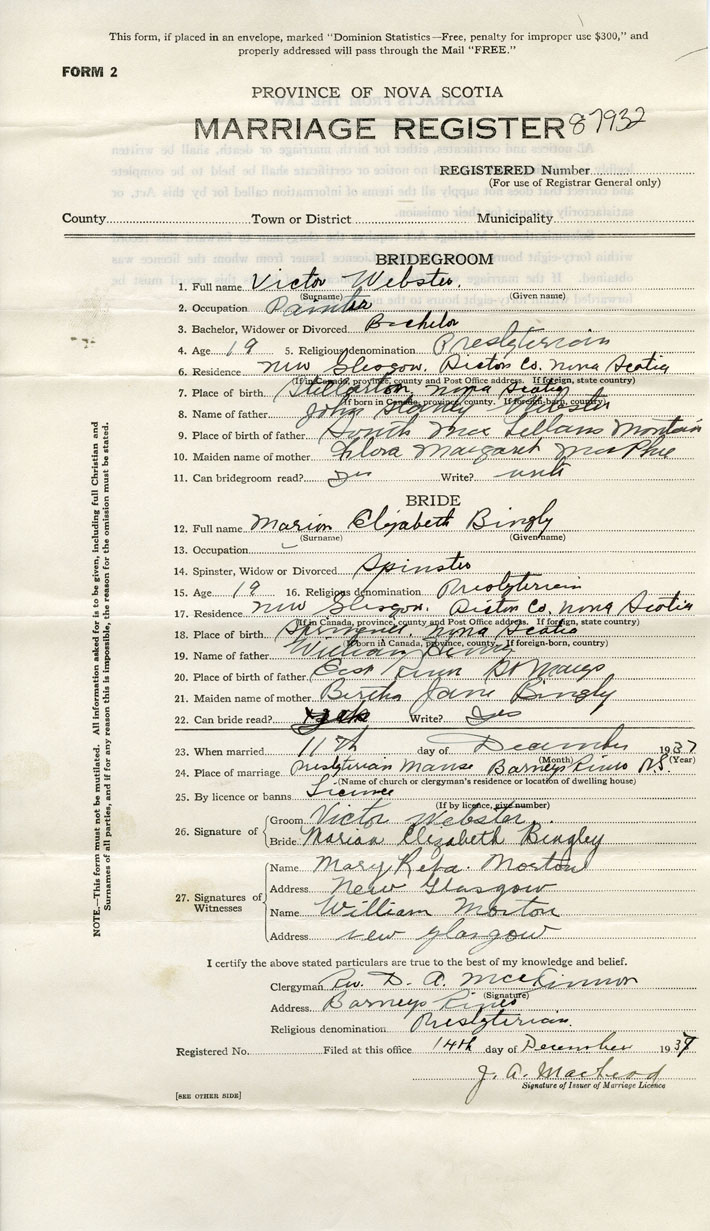 This form, if placed in an envelope, marked "Dominion Statistics—Free, penalty for improper use $300," and
properly addressed will pass through the Mail "FREE."
FORM 2
PROVINCE OF NOVA SCOTIA
MARRIAGE REGISTER 87932
REGISTERED Number
(For use of Registrar General only)
County Town or District Municipality
BRIDEGROOM
1. Full name Victor Webster.
(Surname) (Given name)
2. Occupation Painter
3. Bachelor, Widower or Divorced Bachelor
4. Age 19 5. Religious denomination Presbyterian
6. Residence New Glasgow. Pictou Co. Nova Scotia
(If in Canada, province, county and Post Office address. If foreign, state country)
7. Place of birth Stellarton, Nova Scotia
(If born in Canada, province, county. If foreign-born, country)
8. Name of father John Stanley Webster
9. Place of birth of father South Mac Lellans Montain
10. Maiden name of mother Flora Margaret MacPhie
11. Can bridegroom read? yes Write? write
BRIDE
12. Full name Marion Elizabeth Bingly
(Surname) (Given name)
13. Occupation
14. Spinster, Widow or Divorced Spinster
15. Age 19 16. Religious denomination Presbyterian
17. Residence New Glasgow. Pictou Co. Nova Scotia
(If in Canada, province, county and Post Office address. If foreign, state country)
18. Place of birth Nova Scotia
(If born in Canada, province, county. If foreign-born, country)
19. Name of father William
20. Place of birth of father East River St Marys
21. Maiden name of mother Bertha Jane Bingly
22. Can bride read? Write? Yes
23. When married 11th day of December 1937
(Month) (Year)
24. Place of marriage Presbyterian Manse Barneys River N.S.
(Name of church or clergyman's residence or location of dwelling house)
25. By licence or banns Licence
(If by licence, give number)
26. Signature of Groom Victor Webster.
Bride Marion Elizabeth Bingley
27. Signatures of Witnesses
Name Mary Reta Morton
Address New Glasgow
Name William Morton
Address new glasgow
I certify the above stated particulars are true to the best of my knowledge and belief.
Clergyman Rev. D. A. McKinnon
(Signature)
Address Barneys River
Religious denomination Presbyterian.
Registered No. Filed at this office 14th day of December 1937
J. A. MacLeod
Signature of Issuer of Marriage Licence
[SEE OTHER SIDE]
NOTE.—This form must not be mutilated. All information asked for is to be given, including full Christian and
Surnames of all parties, and if for any reason this is impossible, the reason for the omission must be stated.